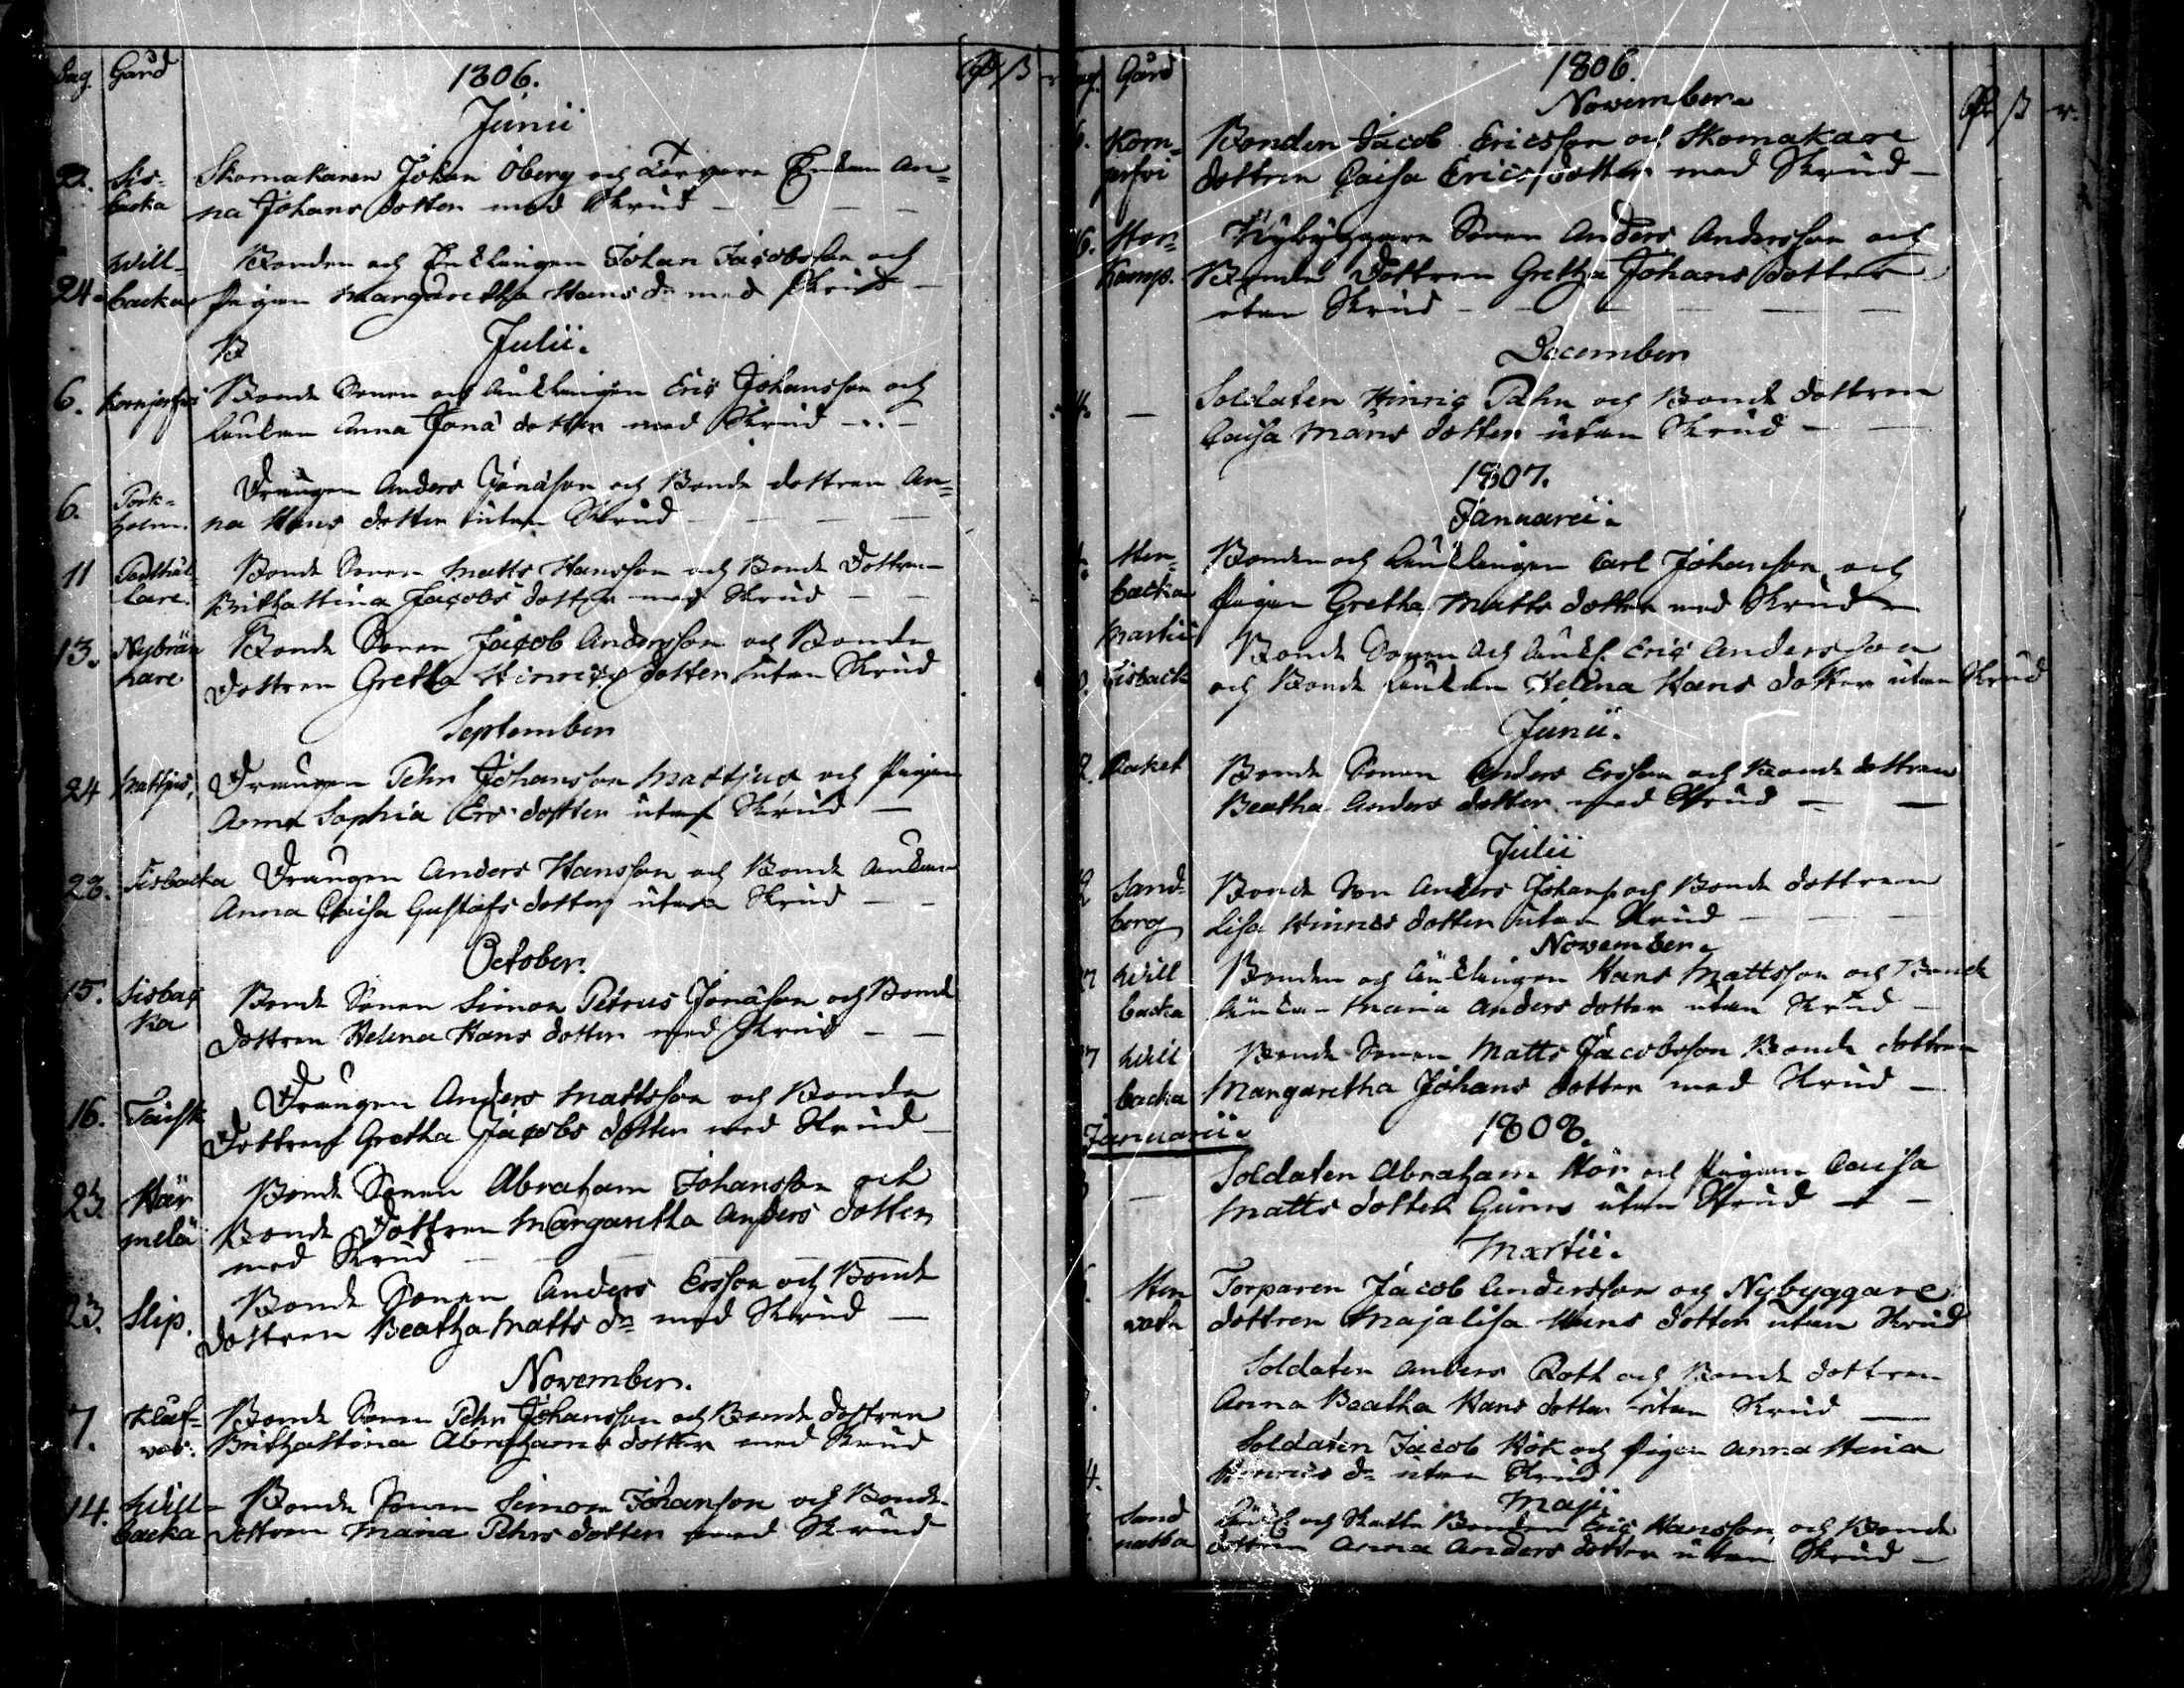 Dag. Gård 1806. Rd ß r
Junii
22. Sis= Skomakaren Johan Öberg och Torpare Enkan An=
backa na Johans dotter med Skrud
Will= Bonden och Enklingen Johan Jacobsson och
24. backa Pigan Margaretha Hans dr med Skrud
Julii.
6. Kornjerfvi Bonde Sonen och Änklingen Eric Johansson och
Änkan Anna Jona dotter med Skrud
Drängen Anders Jonasson och Bonde dottren An=
6. Pörk=
holm. na Hans dotter utan Skrud
11 Bonde Sonen Matts Hansson och Bonde Dottren
Brithastina Jacobs dotter med Skrud
13. Nybrän Bonde Sonen Jacob Andersson och Bonde
nare Dottren Gretha Hinrics dotter utan Skrud
September
24 Mattjus, Drängen Pehr Johansson Mattjus och Pigan
Anna Sophia Ers dotter utan Skrud
28. Sisbacka Drängen Anders Hansson och Bonde Änkan
Anna Caisa Gustafs dotter utan Skrud
October.
15. Sisbac Bonde Sonen Simon Petrus Jonasson och Bonde
ka Dottren Helena Hans dotter med Skrud
16. Drängen Anders Mattsson och Bonde
Dottren Gretha Jacobs dotter med Skrud
23. Här Bonde Sonen Abraham Johansson och
melä Bonde Dottren Margaretha Anders dotter
med Skrud
23. Slip. Bonde Sonen Anders Ersson och Bonde
Dottren Beatha Matts dr med Skrud
November.
7. Bonde Sonen Pehr Johansson och Bonde dottren
Brithastina Abrahams dotter med Skrud
14. Will= Bonde Sonen Simon Johanson och Bonde
backa Dottren Maria Pehrs dotter med Skrud
Gård 1806. Rd ß r.
November
6. Korn= Bonden Jacob Ericsson och Skomakare
jerfvi dottren Caisa Erics dotter med Skrud
16. Stor= Nybyggare Sonen Anders Andersson och
kamp. Bonde Dottren Gretha Johans dotter
utan Skrud
December
Soldaten Hinric Palm och Bonde dottren
Caisa Måns dotter utan Skrud
1807.
Januarii.
Sten= Bonden och Änklingen Carl Johanson och
backa Pigan Gretha Matts dotter med Skrud
Martii Bonde Sonen och Änkl. Eric Andersson
Sisback och Bonde Änkan Helena Hans dotter utan Skrud
Junii.
Raket Bonde Sonen Anders Ersson och Bonde dottren
Beatha Anders dotter med Skrud
Julii
Sand= Bonde Son Anders Johans. och Bonde dottren
berg Lisa Hinrics dotter utan Skrud
November.
27 Will Bonden och Änklingen Hans Mattsson och Bonde
backa Änkan Maria Anders dotter utan Skrud
27 Will Bonde Sonen Matts Jacobsson Bonde dottren
backa Margaretha Johans dotter med Skrud
Januarii. 1808.
Soldaten Abraham Hör och Pigan Caisa
Matts dotter utan Skrud
Martii.
Sten Torparen Jacob Andersson och Nybyggare
vatn dottren Majalisa Hans dotter utan Skrud
Soldaten Anders Roth och Bonde dottren
Anna Beatha Hans dotter utan Skrud
Soldaten Jacob Hök och Pigan Anna Stina
4. Hinrics dr utan Skrud
Maji
Sand Änkl. och Skatte Bonden Eric Hansson och Bonde
natba dottren Anna Anders dotter utan Skrud